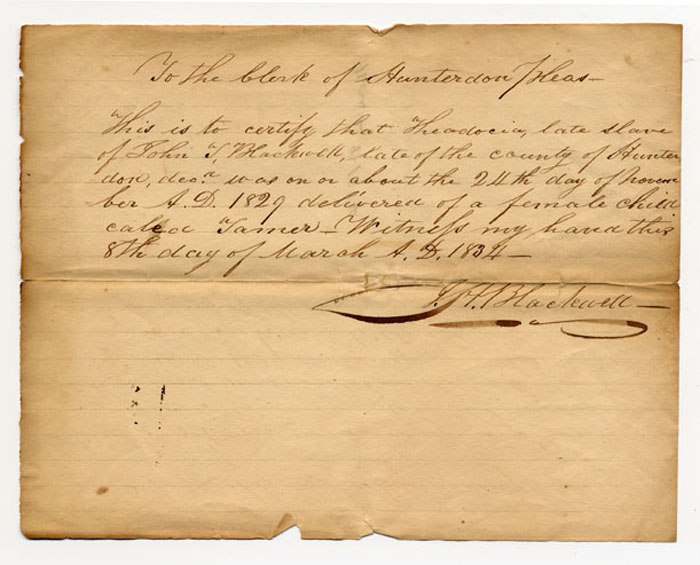 To the Clerk of Hunterdon Pleas—
This is to certify that Theodocia, late slave
of John T. Blackwell, late of the county of Hunter
don, decd. was on or about the 24th day of Novem
ber A.D. 1829 delivered of a female child
called Tamer— Witness my hand this
8th day of March A.D. 1834—
Blackwell—